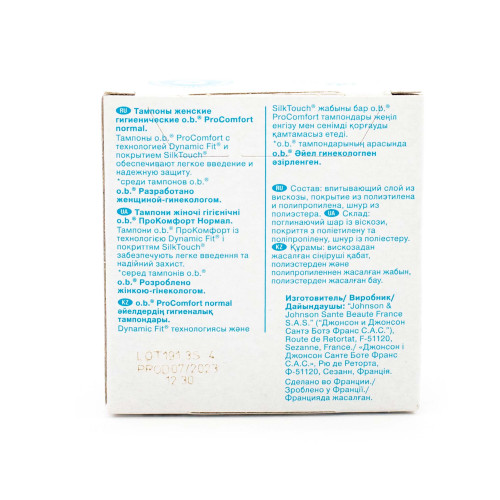 RU Тампоны женские
гигиенические o.b.® ProComfort
normal.
Тампоны o.b.® ProComfort с
технологией Dynamic Fit® и
покрытием SilkTouch®
обеспечивают легкое введение и
надежную защиту.
*среди тампонов o.b.®
o.b.® Разработано
женщиной-гинекологом.
UA Тампони жіночі гігієнічні
o.b.® ПроКомфорт Нормал.
Тампони o.b.® ПроКомфорт із
технологією Dynamic Fit® і
покриттям SilkTouch®
забезпечують легке введення та
надійний захист.
*серед тампонів o.b.®
o.b.® Розроблено
жінкою-гінекологом.
KZ o.b.® ProComfort normal
әйелдердің гигиеналық
тампондары.
Dynamic Fit® технологиясы және
LOT191 3S 4
PROD07/2023
12 30
SilkTouch® жабыны бар o.b.®
ProComfort тампондары жеңіл
енгізу мен сенімді қорғауды
қамтамасыз етеді.
*o.b.® тампондарының арасында
o.b.® Әйел гинекологпен
әзірленген.
RU Состав: впитывающий слой из
вискозы, покрытие из полиэтилена
и полипропилена, шнур из
полиэстера. UA Склад:
поглинаючий шар із віскози,
покриття з поліетилену та
поліпропілену, шнур із поліестеру.
KZ Құрамы: вискозадан
жасалған сіңіруші қабат,
полиэстерден және
полипропиленнен жасалған жабын,
полиэстерден жасалған бау.
Изготовитель/ Виробник/
Дайындаушы: "Johnson &
Johnson Sante Beaute France
S.A.S." ("Джонсон и Джонсон
Сантэ Ботэ Франс С.А.С."),
Route de Retortat, F-51120,
Sezanne, France./ «Джонсон і
Джонсон Санте Боте Франс
С.А.С.», Рю де Реторта,
Ф-51120, Сезанн, Франція.
Сделано во Франции./
Зроблено у Франції./
Францияда жасалған.